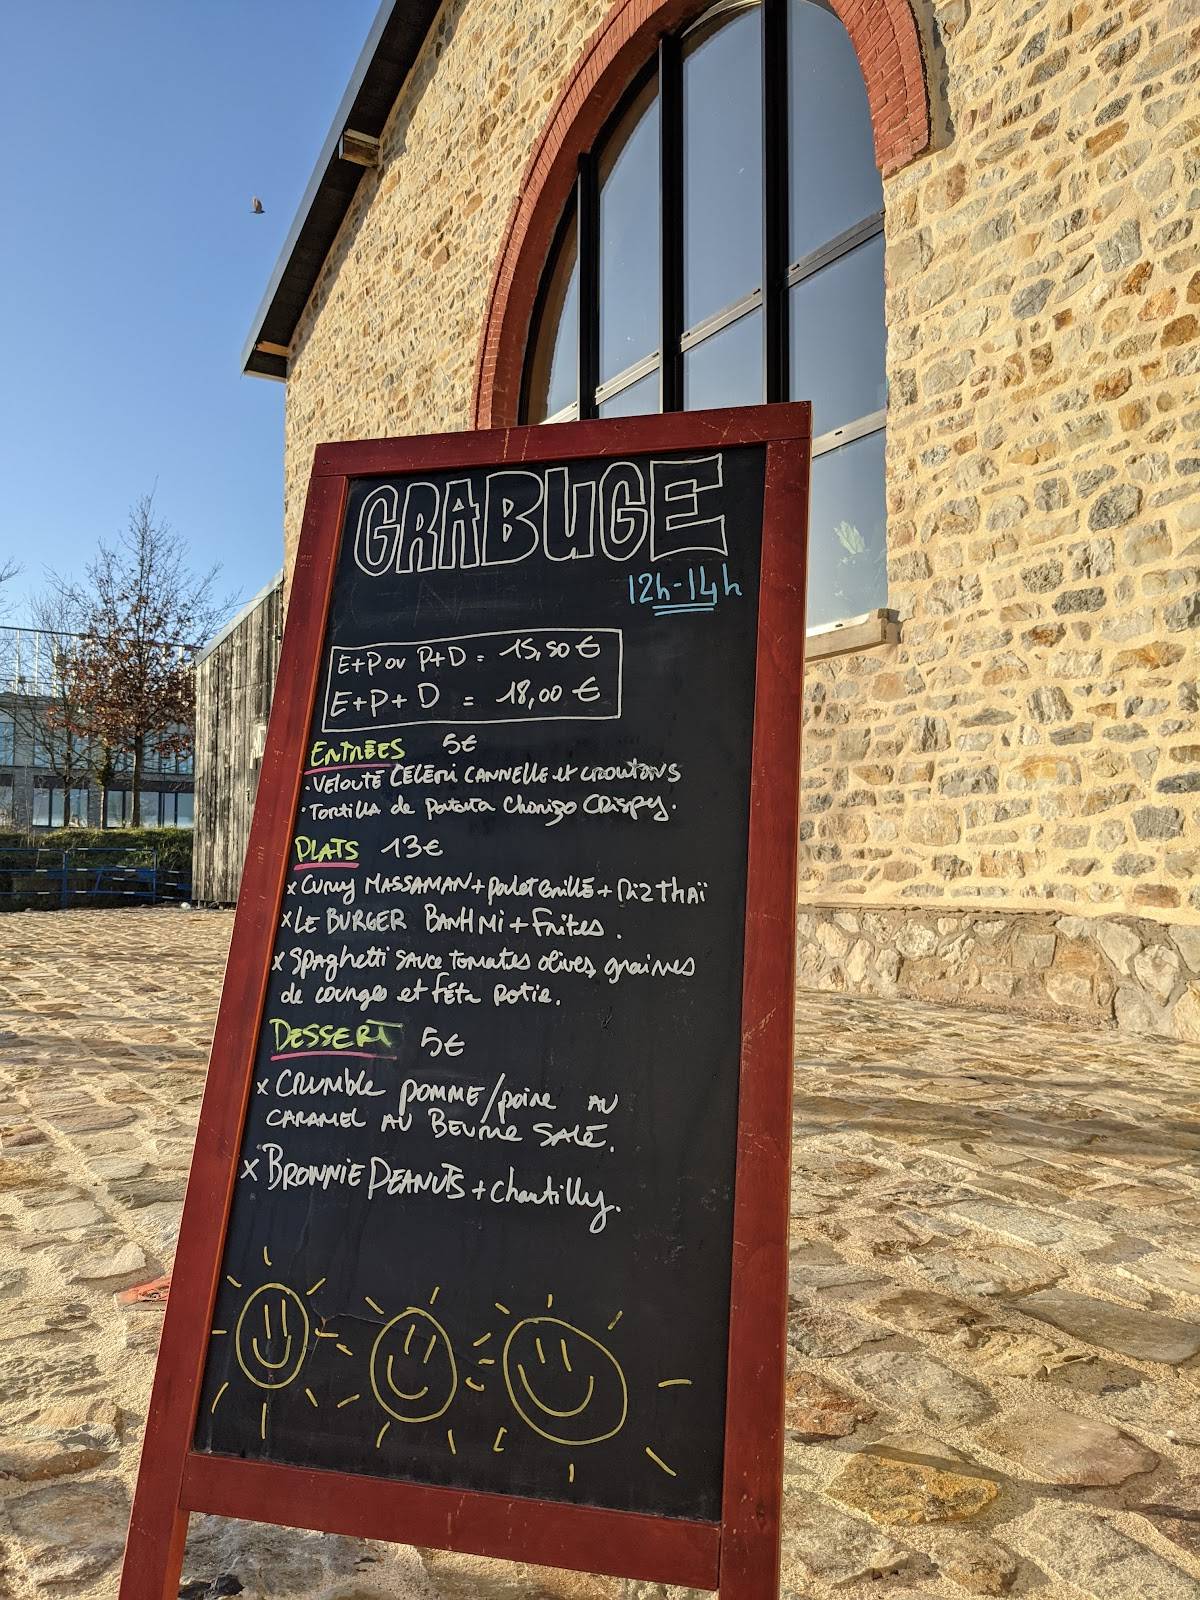 GRABUGE
12h-14h
E+P ou P+D = 15,50 €
E+P+D = 18,00 €
ENTRÉES 5€
• VELOUTÉ CELERI CANNELLE et croutons
• Tortilla de patata Chorizo CRISPY.
PLATS 13€
x Curry MASSAMAN + poulet Grillé + riz THAÏ
x LE BURGER BANH MI + Frites.
x Spaghetti SAUCE TOMATES olives, graines
de courges et féta rotie.
DESSERT 5€
x CRUMBLE POMME/poire AU
CARAMEL AU BEURRE SALÉ.
x BROWNIE PEANUTS + chantilly.